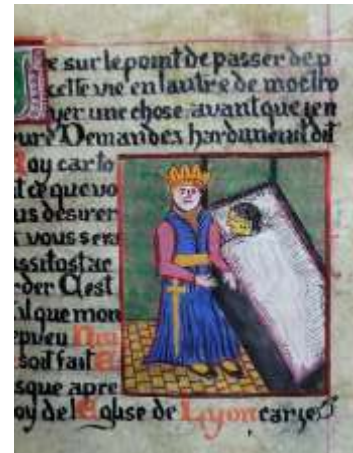 re sur le point de passer de p
cette vie en lautre de moctro
yer une chose avant que ien
ure Demandez hardument dit
Roy car to
t ce que vo
us desurer
t vous sera
ussitost ac
der Cest
al que mon
epueu
soit fait
sque apre
oy de l Eglise de Lyon car ie